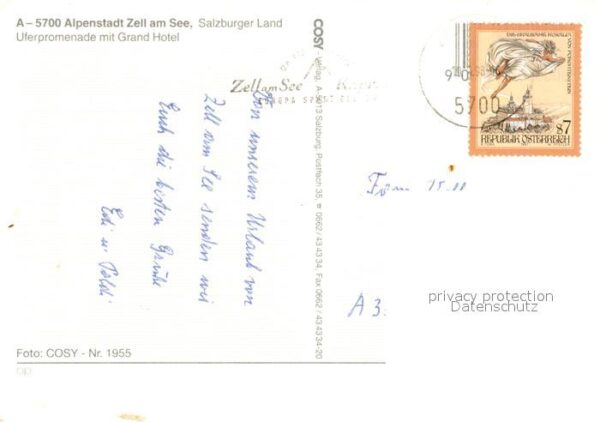 A – 5700 Alpenstadt Zell am See, Salzburger Land
Uferpromenade mit Grand Hotel
Von unserem Urlaub von
Zell am See senden wir
Euch die besten Grüße
Edi u. Poldi
COSY - Verlag, A-5013 Salzburg, Postfach 35, ☎ 0662/43 43 34, Fax 0662/43 43 34-20
Zell am See
5700
ROSALIA
VON FORCHTENSTEIN
s7
REPUBLIK ÖSTERREICH
A 3
privacy protection
Datenschutz
Foto: COSY - Nr. 1955